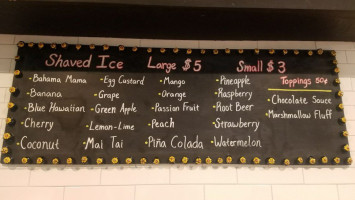 Shaved Ice Large $5 Small $3
-Bahama Mama
-Banana
-Blue Hawaiian
-Cherry
Coconut
-Egg Custard
-Grape
-Green Apple
-Lemon-Lime
Mai Tai
-Mango
-Orange
-Passion Fruit
-Peach
Piña Colada
-Pineapple
-Raspberry
-Root Beer
-Strawberry
-Watermelon
Toppings 50¢
-Chocolate Sauce
-Marshmallow Fluff